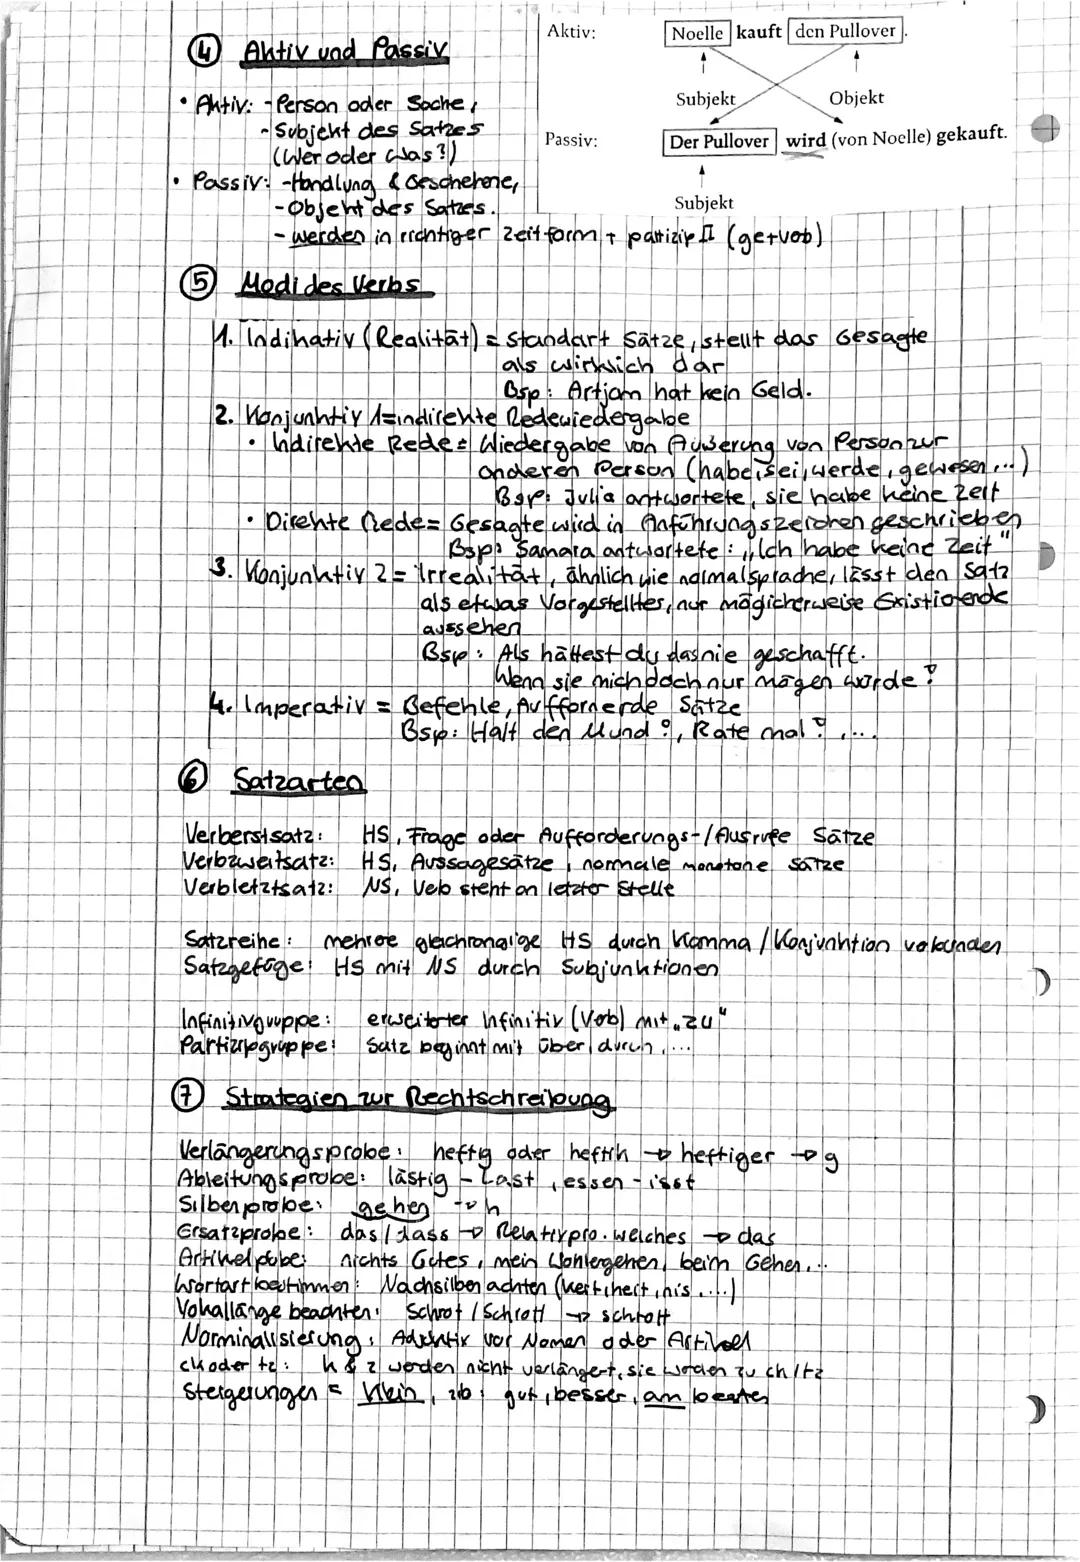 ④ Aktiv und Passiv
• Aktiv: - Person oder Sache,
- Subjekt des Satzes
(Wer oder Was?)
• Passiv: - Handlung & Geschehene,
- Objekt des Satzes.
- werden in richtiger Zeitform + partizip II (ge+verb)
Aktiv: Noelle kauft den Pullover.
Subjekt Objekt
Passiv: Der Pullover wird (von Noelle) gekauft.
Subjekt
⑤ Modi des Verbs
1. Indikativ (Realität) = Standart Sätze, stellt das Gesagte
als wirklich dar
Bsp: Artjam hat kein Geld.
2. Konjunktiv 1 = indirekte Redewiedergabe
• Indirekte Rede = Wiedergabe von Äußerung von Person zur
anderen Person (habe, sei, werde, gewesen, ...)
Bsp: Julia antwortete, sie habe keine Zeit
• Direkte Rede = Gesagte wird in Anführungszeichen geschrieben
Bsp: Samara antwortete: „Ich habe keine Zeit"
3. Konjunktiv 2 = Irrealität, ähnlich wie normalsprache, lässt den Satz
als etwas Vorgestelltes, nur möglicherweise Existierende
aussehen
Bsp: Als hättest du das nie geschafft.
Wenn sie mich doch nur mögen würde!
4. Imperativ = Befehle, Auffordernde Sätze
Bsp: Halt den Mund!, Rate mal!, ...
⑥ Satzarten
Verberstsatz: HS, Frage oder Aufforderungs-/Ausrufe Sätze
Verbzweitsatz: HS, Aussagesätze, normale monotone Sätze
Verbletztsatz: NS, Verb steht an letzter Stelle
Satzreihe: mehrere gleichrangige HS durch Komma / Konjunktion verbunden
Satzgefüge: HS mit NS durch Subjunktionen
Infinitivgruppe: erweiterter Infinitiv (Verb) mit „zu"
Partizipgruppe: Satz beginnt mit über, durch, ...
⑦ Strategien zur Rechtschreibung
Verlängerungsprobe: heftig oder heftih → heftiger → g
Ableitungsprobe: lästig - Last, essen - isst
Silbenprobe: gehen → h
Ersatzprobe: das / dass → Relativpro. welches → das
Artikelprobe: nichts Gutes, mein Wohlergehen, beim Gehen, ..
Wortart bestimmen: Nachsilben achten (keit, heit, nis, ...)
Vokallänge beachten: Schrot / Schrott → schrott
Norminalisierung: Adjektiv vor Nomen oder Artikel
ck oder tz: k & z werden nicht verlängert, sie werden zu ck / tz
Steigerungen = klein, zb: gut, besser, am besten